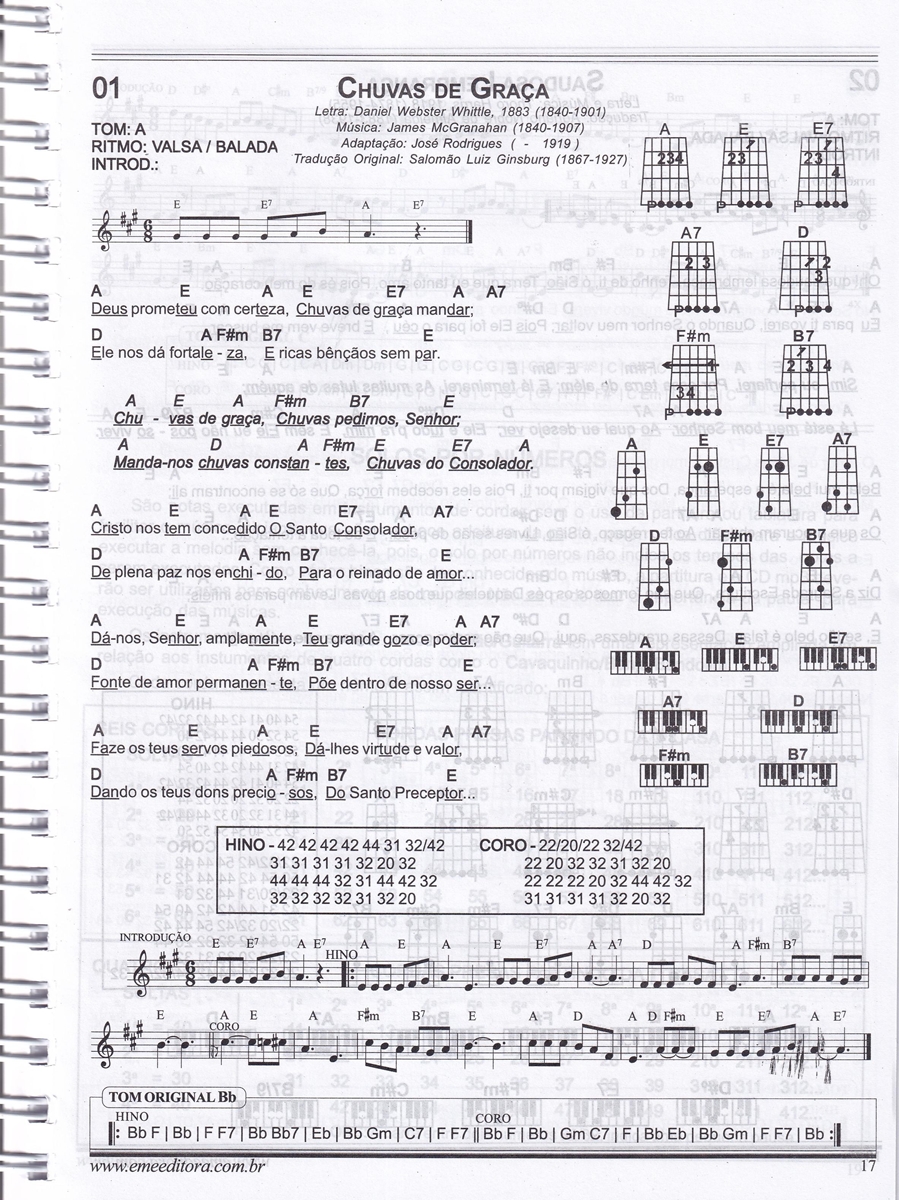 01
CHUVAS DE GRAÇA
Letra: Daniel Webster Whittle, 1883 (1840-1901)
Música: James McGranahan (1840-1907)
Adaptação: José Rodrigues ( - 1919 )
Tradução Original: Salomão Luiz Ginsburg (1867-1927)
TOM: A
RITMO: VALSA / BALADA
INTROD.:
A E E7
A7 D
F#m B7
E E7 A E7
A E A E E7 A A7
Deus prometeu com certeza, Chuvas de graça mandar;
D A F#m B7 E
Ele nos dá fortale - za, E ricas bênçãos sem par.
A E A F#m B7 E
Chu - vas de graça, Chuvas pedimos, Senhor;
A D A F#m E E7 A
Manda-nos chuvas constan - tes, Chuvas do Consolador.
A E E7 A7
D F#m B7
A E A E E7 A A7
Cristo nos tem concedido O Santo Consolador,
D A F#m B7 E
De plena paz nos enchi - do, Para o reinado de amor...
A E A E E7 A A7
Dá-nos, Senhor, amplamente, Teu grande gozo e poder;
D A F#m B7 E
Fonte de amor permanen - te, Põe dentro de nosso ser...
A E E7
A7 D
F#m B7
A E A E E7 A A7
Faze os teus servos piedosos, Dá-lhes virtude e valor,
D A F#m B7 E
Dando os teus dons precio - sos, Do Santo Preceptor...
HINO - 42 42 42 42 44 31 32/42
31 31 31 31 32 20 32
44 44 44 32 31 44 42 32
32 32 32 32 31 32 20
CORO - 22/20/22 32/42
22 20 32 32 31 32 20
22 22 22 20 32 44 42 32
31 31 31 31 32 20 32
INTRODUÇÃO
E E7 A E7 HINO A E A E E7 A A7 D A F#m B7
E CORO A E A F#m B7 E A D A D F#m E E7 A E7
TOM ORIGINAL Bb
HINO CORO
: Bb F | Bb | F F7 | Bb Bb7 | Eb | Bb Gm | C7 | F F7 || Bb F | Bb | Gm C7 | F | Bb Eb | Bb Gm | F F7 | Bb :
www.emeeditora.com.br
17